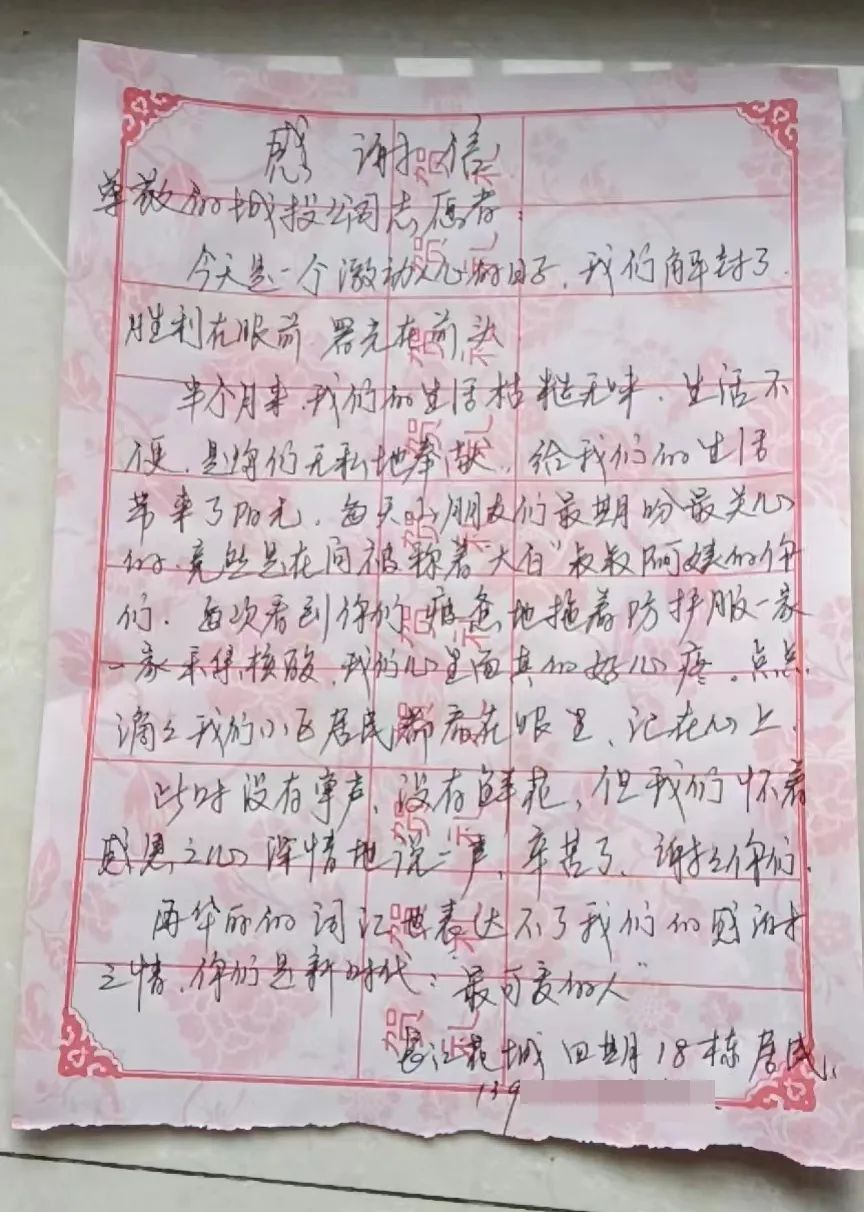 感谢信
尊敬的城投公司志愿者：
今天是一个激动人心的日子，我们解封了，
胜利在眼前 曙光在前头
半个月来，我们的生活枯糙无味，生活不
便，是你们无私地奉献，给我们的生活
带来了阳光，每天小朋友们最期盼最关心
的，竟然是在问被称着“大白”叔叔阿姨的你
们，每次看到你们疲惫地拖着防护服一家
一家采集核酸，我们心里面真的好心疼。点点
滴滴我们小区居民都看在眼里、记在心上，
此时没有掌声，没有鲜花，但我们怀着
感恩之心深情地说一声，辛苦了，谢谢你们，
再华丽的词汇也表达不了我们的感谢
之情，你们是新时代：“最可爱的人”
长江花城四期18栋居民
139
贺礼
贺礼
贺礼
贺礼
贺礼
贺礼
贺礼
贺礼
贺礼
贺礼